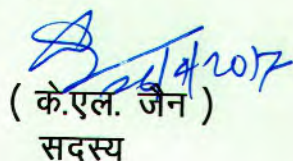 26/4/2017
( के.एल. जैन )
सदस्य